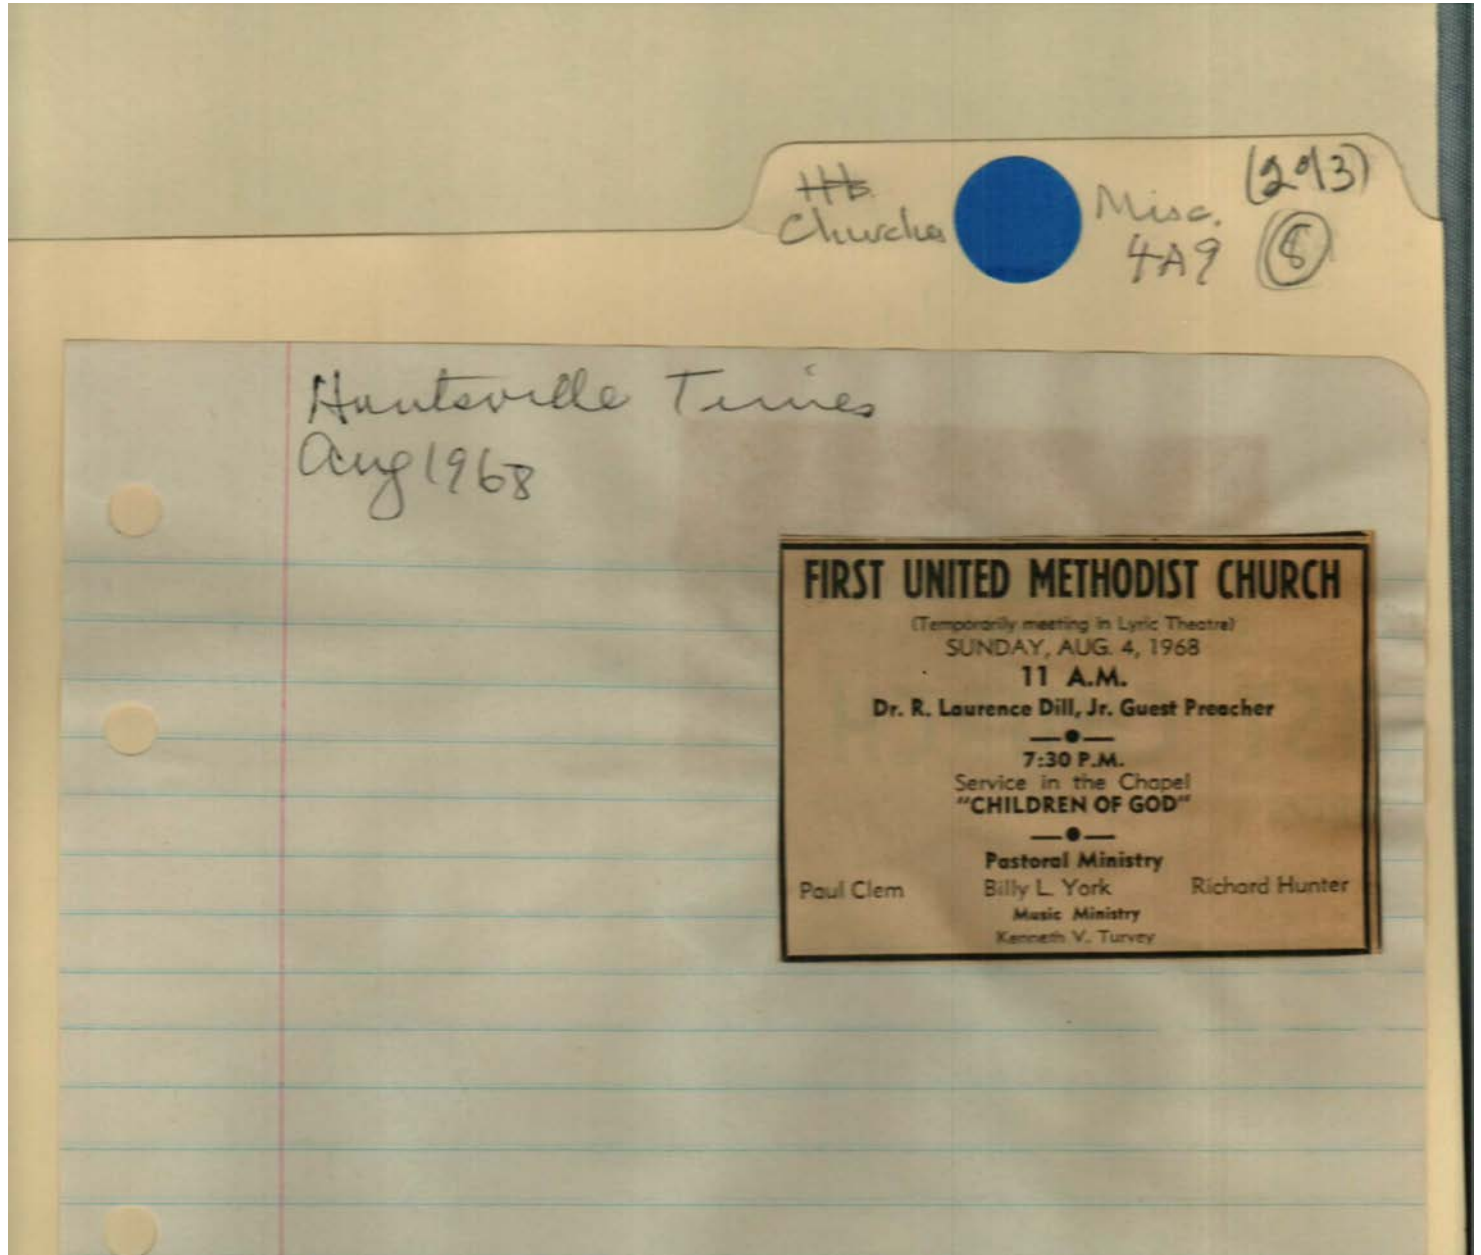 Churches
Misc.
4A9
(2 of 3)
8
Huntsville Times
Aug 1968
FIRST UNITED METHODIST CHURCH
(Temporarily meeting in Lyric Theatre)
SUNDAY, AUG. 4, 1968
11 A.M.
Dr. R. Laurence Dill, Jr. Guest Preacher
7:30 P.M.
Service in the Chapel
"CHILDREN OF GOD"
Pastoral Ministry
Paul Clem Billy L. York Richard Hunter
Music Ministry
Kenneth V. Turvey